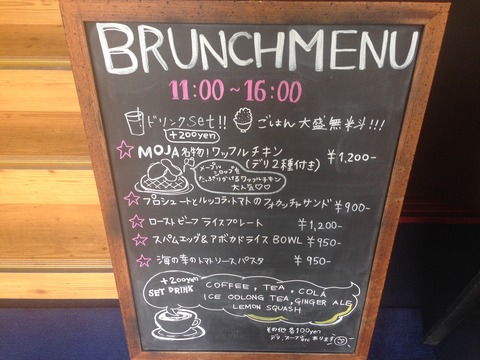 BRUNCHMENU
11:00~16:00
ドリンクset!! ごはん大盛無料!!!
+200yen
☆ MOJA名物!ワッフルチキン (デリ2種付き) ¥1,200-
メープルシロップを
たっぷりかけるワッフルチキン
大人気♡♡
☆ プロシュートとルッコラ・トマトのフォカッチャサンド ¥900-
☆ ローストビーフライスプレート ¥1,200-
☆ スパムエッグ&アボカドライスBOWL ¥950-
☆ 海の幸のトマトソースパスタ ¥950-
+200yen
SET DRINK
COFFEE, TEA, COLA
ICE OOLONG TEA, GINGER ALE
LEMON SQUASH
その他各100yen
デリ、スープetcあります